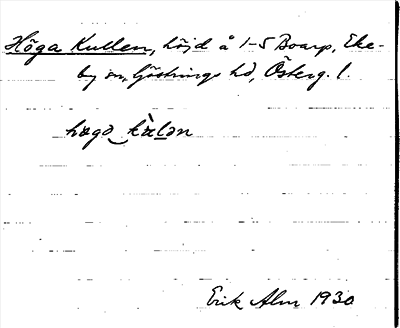 Höga Kullen, höjd å 1-5 Boarp, Eke-
by sn, Göstrings hd, Österg. l.
høgə kùlən
Erik Alm 1930